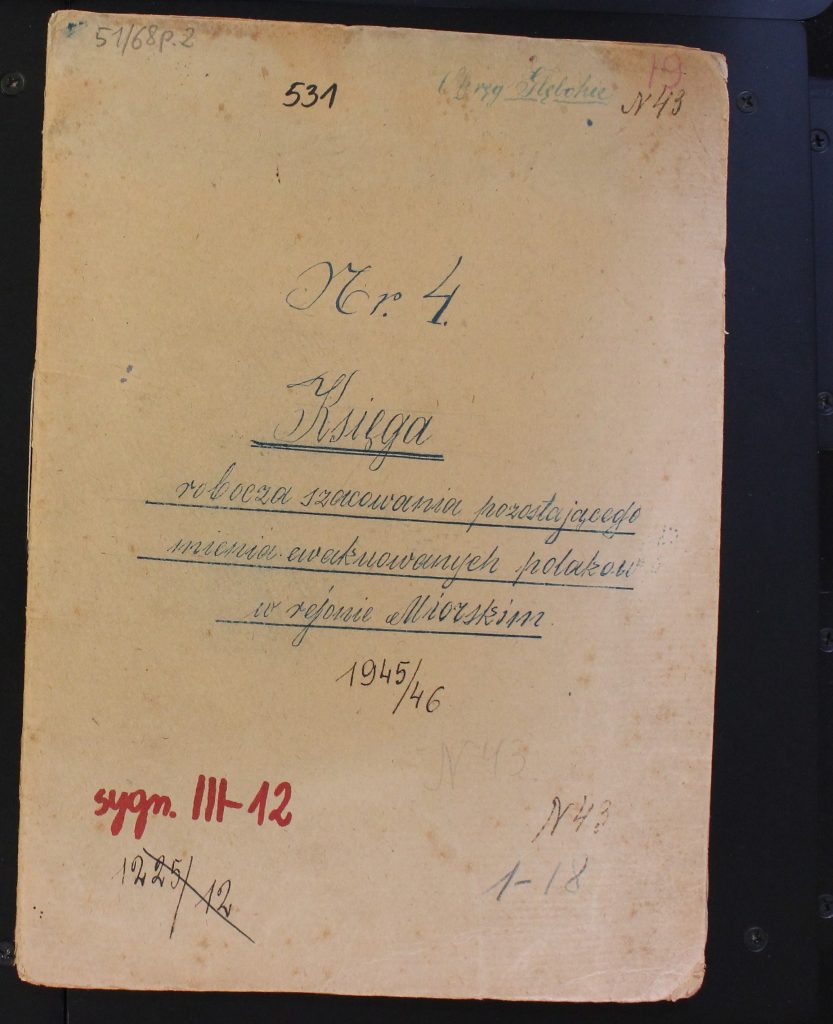 51/68p.2
19
531
Głębokie
N43
Nr. 4.
Księga
robocza szacowania pozostającego
mienia ewakuowanych polakow
w rejonie Miorskim.
1945/46
N 43.
sygn. III-12
N43
1225/12
1-18